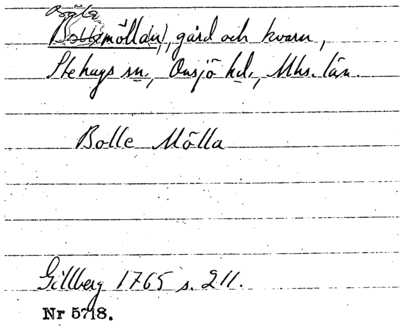 Bögle
Bollemölla(n), gård och kvarn,
Stehags sn., Onsjö hd., Mhs. län.
Bolle Mölla
Gillberg 1765 s. 211.
Nr 5718.